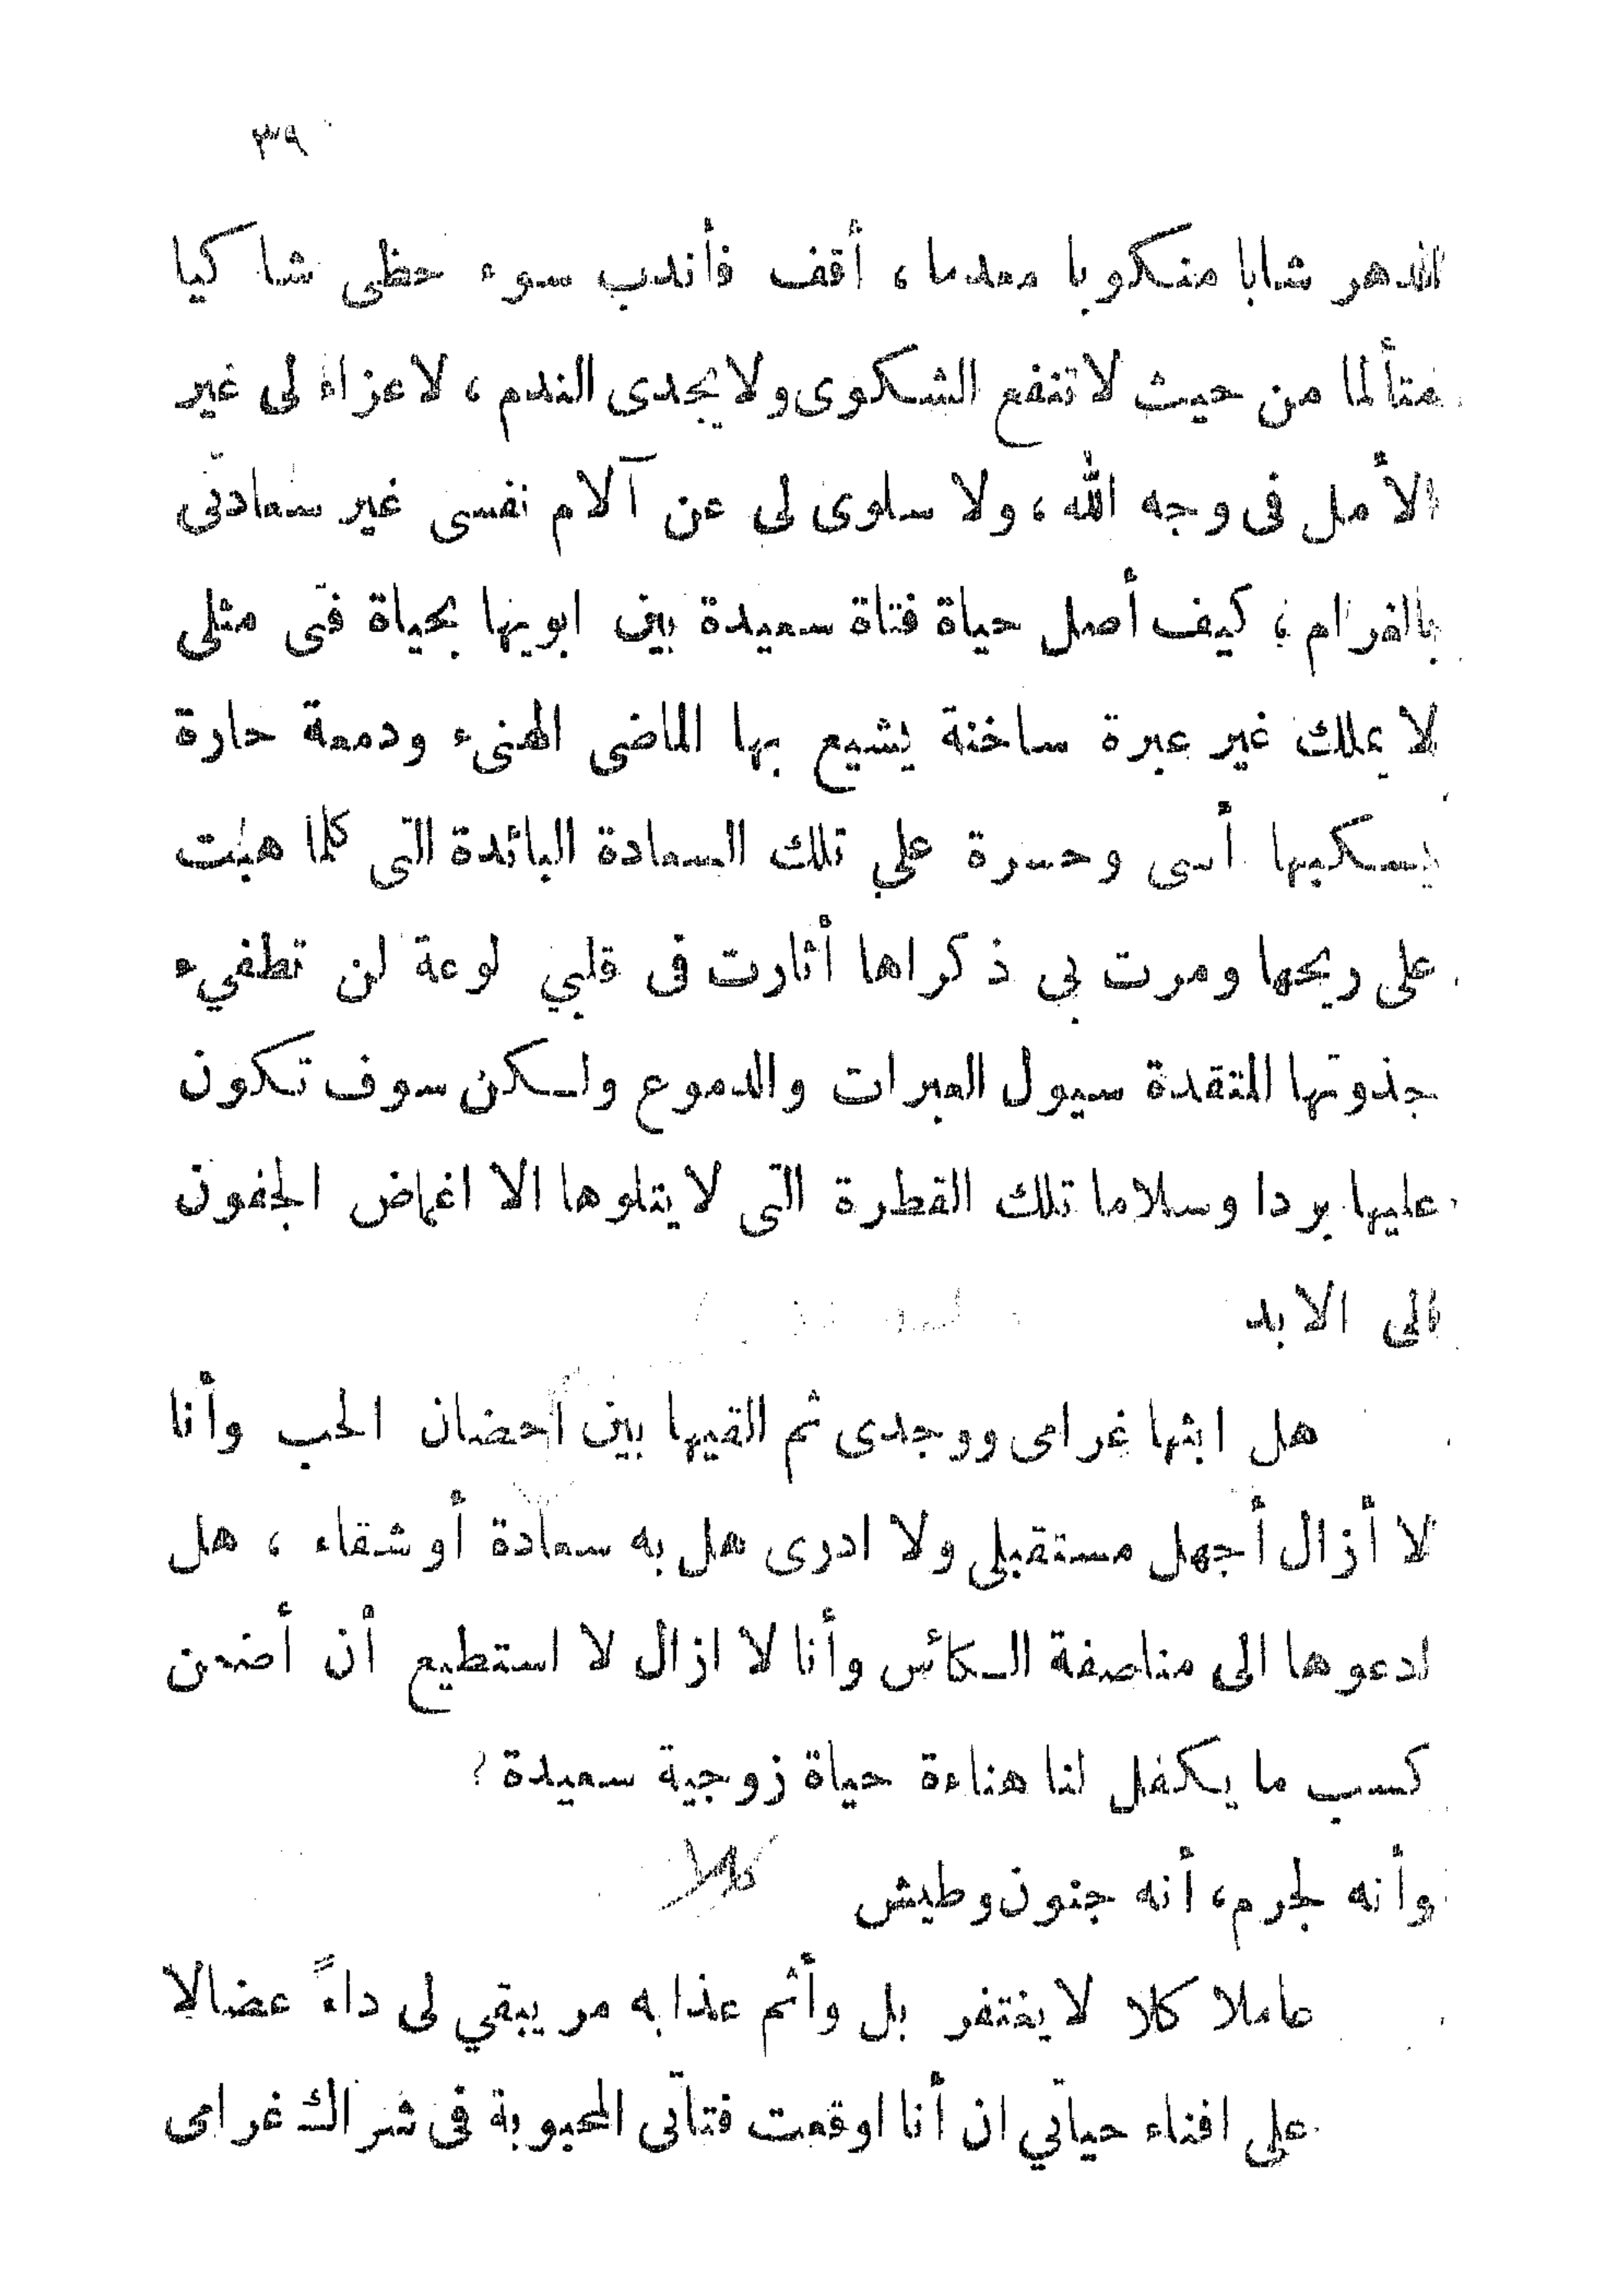 ٣٩
الدهر شابا منكوبا معدما، أقف فأندب سوء حظى شاكيا
متألما من حيث لا تنفع الشكوى ولا يجدى الندم، لا عزاء لى غير
الأمل فى وجه الله، ولا سلوى لى عن آلام نفسى غير سعادتى
بالغرام، كيف أصل حياة فتاة سعيدة بين ابويها بحياة فتى مثلى
لا يملك غير عبرة ساخنة يشيع بها الماضى الهنىء ودمعة حارة
يسكبها أسى وحسرة علي تلك السعادة البائدة التى كلما هبت
على ريحها ومرت بى ذكراها أثارت فى قلبي لوعة لن تطفيء
جذوتها المتقدة سيول العبرات والدموع ولكن سوف تكون
عليها بردا وسلاما تلك القطرة التى لا يتلوها الا اغماض الجفون
الى الابد
هل ابثها غرامى ووجدى ثم القيها بين أحضان الحب وأنا
لا أزال أجهل مستقبلى ولا ادرى هل به سعادة أو شقاء ، هل
ادعوها الى مناصفة الكأس وأنا لا ازال لا استطيع أن أضمن
كسب ما يكفل لنا هناءة حياة زوجية سعيدة ؟
وأنه لجرم، أنه جنون وطيش كلا
عاملا كلا لا يغتفر بل وأثم عذابه مر يبقي لى داءً عضالا
على افناء حياتي ان أنا اوقعت فتاتى المحبوبة فى شراك غرامى